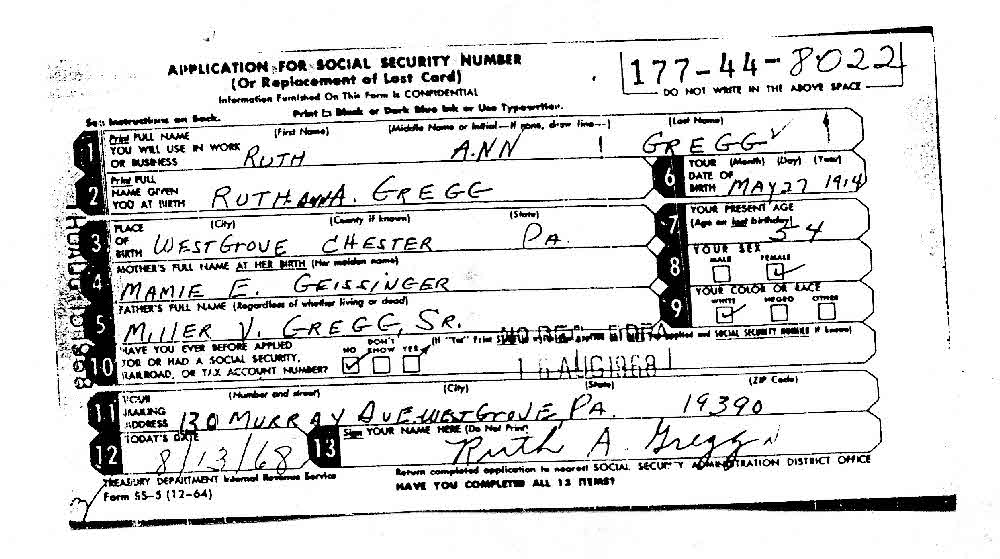 APPLICATION FOR SOCIAL SECURITY NUMBER
(Or Replacement of Lost Card)
Information Furnished On This Form Is CONFIDENTIAL
177-44-8022
DO NOT WRITE IN THE ABOVE SPACE
See Instructions on Back. Print in Black or Dark Blue Ink or Use Typewriter.
1 Print FULL NAME YOU WILL USE IN WORK OR BUSINESS (First Name) (Middle Name or Initial—If none, draw line—) (Last Name)
RUTH ANN GREGG
2 Print FULL NAME GIVEN YOU AT BIRTH
RUTH ANNA. GREGG
6 YOUR DATE OF BIRTH (Month) (Day) (Year)
MAY 27 1914
3 PLACE OF BIRTH (City) (County if known) (State)
WEST GROVE CHESTER PA.
7 YOUR PRESENT AGE (Age on last birthday)
54
4 MOTHER'S FULL NAME AT HER BIRTH (Her maiden name)
MAMIE E. GEISSINGER
8 YOUR SEX
MALE FEMALE
5 FATHER'S FULL NAME (Regardless of whether living or dead)
MILLER V. GREGG, SR.
9 YOUR COLOR OR RACE
WHITE NEGRO OTHER
10 HAVE YOU EVER BEFORE APPLIED FOR OR HAD A SOCIAL SECURITY, RAILROAD, OR TAX ACCOUNT NUMBER? NO DON'T KNOW YES (If "Yes" Print applied and SOCIAL SECURITY NUMBER if known)
16 AUG 1968
11 YOUR MAILING ADDRESS (Number and street) (City) (State) (ZIP Code)
130 MURRAY AVE. WEST GROVE PA. 19390
12 TODAY'S DATE
8/13/68
13 Sign YOUR NAME HERE (Do Not Print)
Ruth A. Gregg
TREASURY DEPARTMENT Internal Revenue Service
Form SS-5 (12-64)
Return completed application to nearest SOCIAL SECURITY ADMINISTRATION DISTRICT OFFICE
HAVE YOU COMPLETED ALL 13 ITEMS?